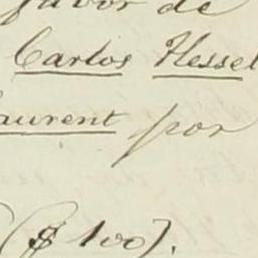 favor de
Carlos Hessel
aurent por
($ 100).